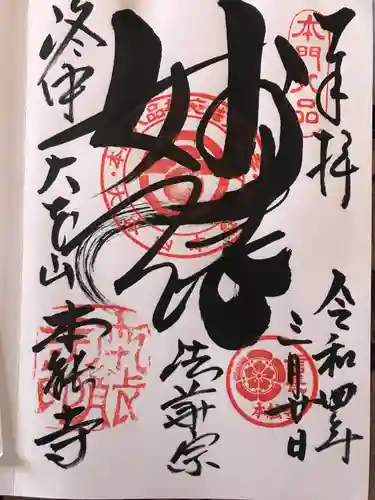 奉拝
本門八品
令和四年
三月廿日
妙法
法華宗
洛中 大本山
本能寺